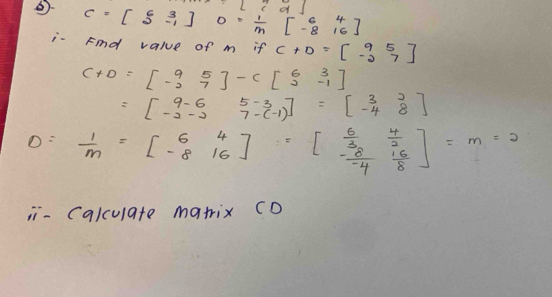 5)- C = [ 6 3 / 2 -1 ] D = 1/m [ 6 4 / -8 16 ]
i- Find value of m if C + D = [ 9 5 / -2 7 ]
C + D = [ 9 5 / -2 7 ] - C [ 6 3 / 2 -1 ]
= [ 9-6 5-3 / -2-2 7-(-1) ] = [ 3 2 / -4 8 ]
D = 1/m = [ 6 4 / -8 16 ] = [ 6/3 4/2 / -8/-4 16/8 ] = m = 2
ii- Calculate matrix CD